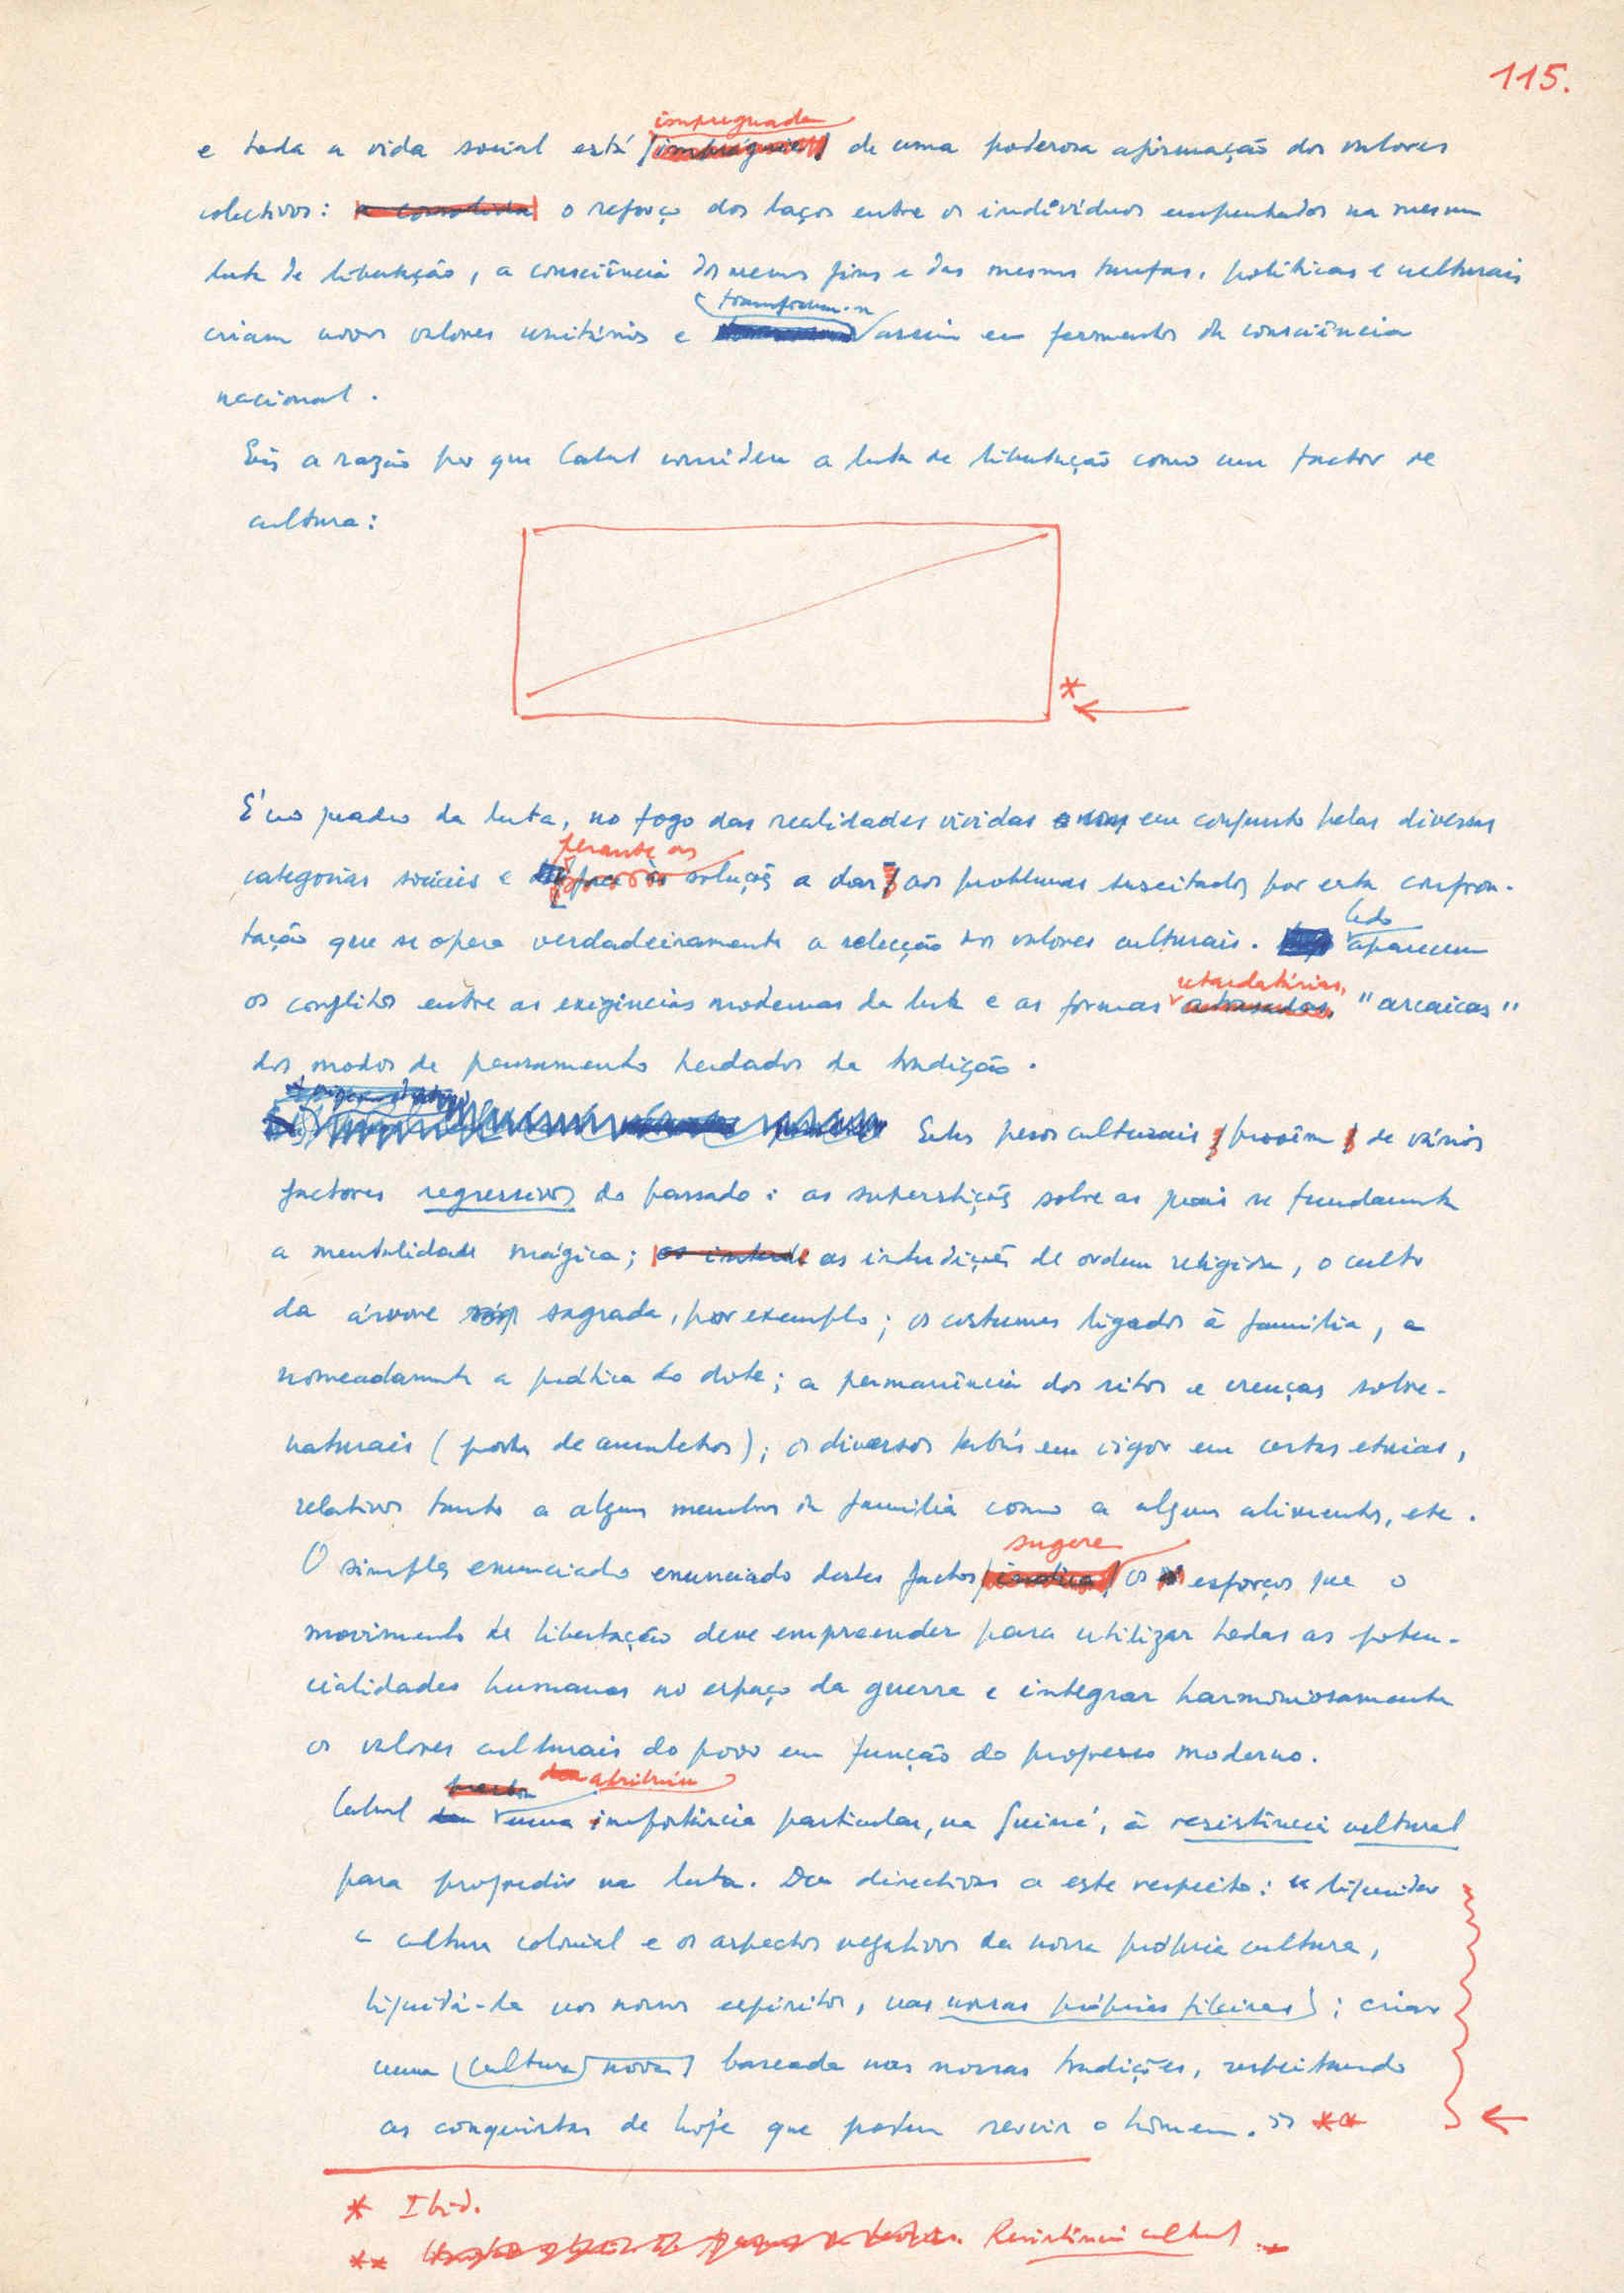 115.
impregnada
e toda a vida social está de uma poderosa afirmação dos valores
colectivos: a consolida o reforço dos laços entre os indivíduos empenhados na mesma
luta de libertação, a consciência dos mesmos fins e das mesmas tarefas, políticas e culturais
transformam-se
criam novos valores unitários e assim em fermentos da consciência
nacional.
Eis a razão por que Cabral considera a luta de libertação como um factor de
cultura:
*
É no quadro da luta, no fogo das realidades vividas em conjunto pelas diversas
perante as
categorias sociais e face às soluções a dar aos problemas suscitados por esta confron-
tação que se opera verdadeiramente a selecção dos valores culturais. aparecem
retardatárias,
os conflitos entre as exigências modernas da luta e as formas atrasadas, "arcaicas"
dos modos de pensamento herdados da tradição.
Estes pesos culturais provêm de vários
factores regressivos do passado: as superstições sobre as quais se fundamenta
a mentalidade mágica; as interdições de ordem religiosa, o culto
da árvore sagrada, por exemplo; os costumes ligados à família, e
nomeadamente a prática do dote; a permanência dos ritos e crenças sobre-
naturais (porte de amuletos); os diversos tabús em vigor em certas etnias,
relativos tanto a alguns membros da família como a alguns alimentos, etc.
sugere
O simples enunciado enunciado destes factos os esforços que o
movimento de libertação deve empreender para utilizar todas as poten-
cialidades humanas no espaço da guerra e integrar harmoniosamente
os valores culturais do povo em função do progresso moderno.
atribuiu
Cabral uma importância particular, na Guiné, à resistência cultural
para progredir na luta. Deu directivas a este respeito: « liquidar
a cultura colonial e os aspectos negativos da nossa própria cultura,
liquidá-la nos nossos espíritos, nas nossas próprias fileiras; criar
uma cultura nova baseada nas nossas tradições, respeitando
as conquistas de hoje que podem servir o homem. » **
* Ibid.
** Resistência cultural